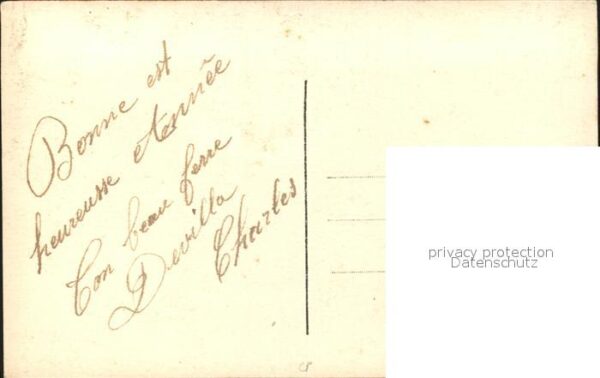 Bonne est
heureusse Année
Ton beau ferre
Devilla
Charles
privacy protection
Datenschutz